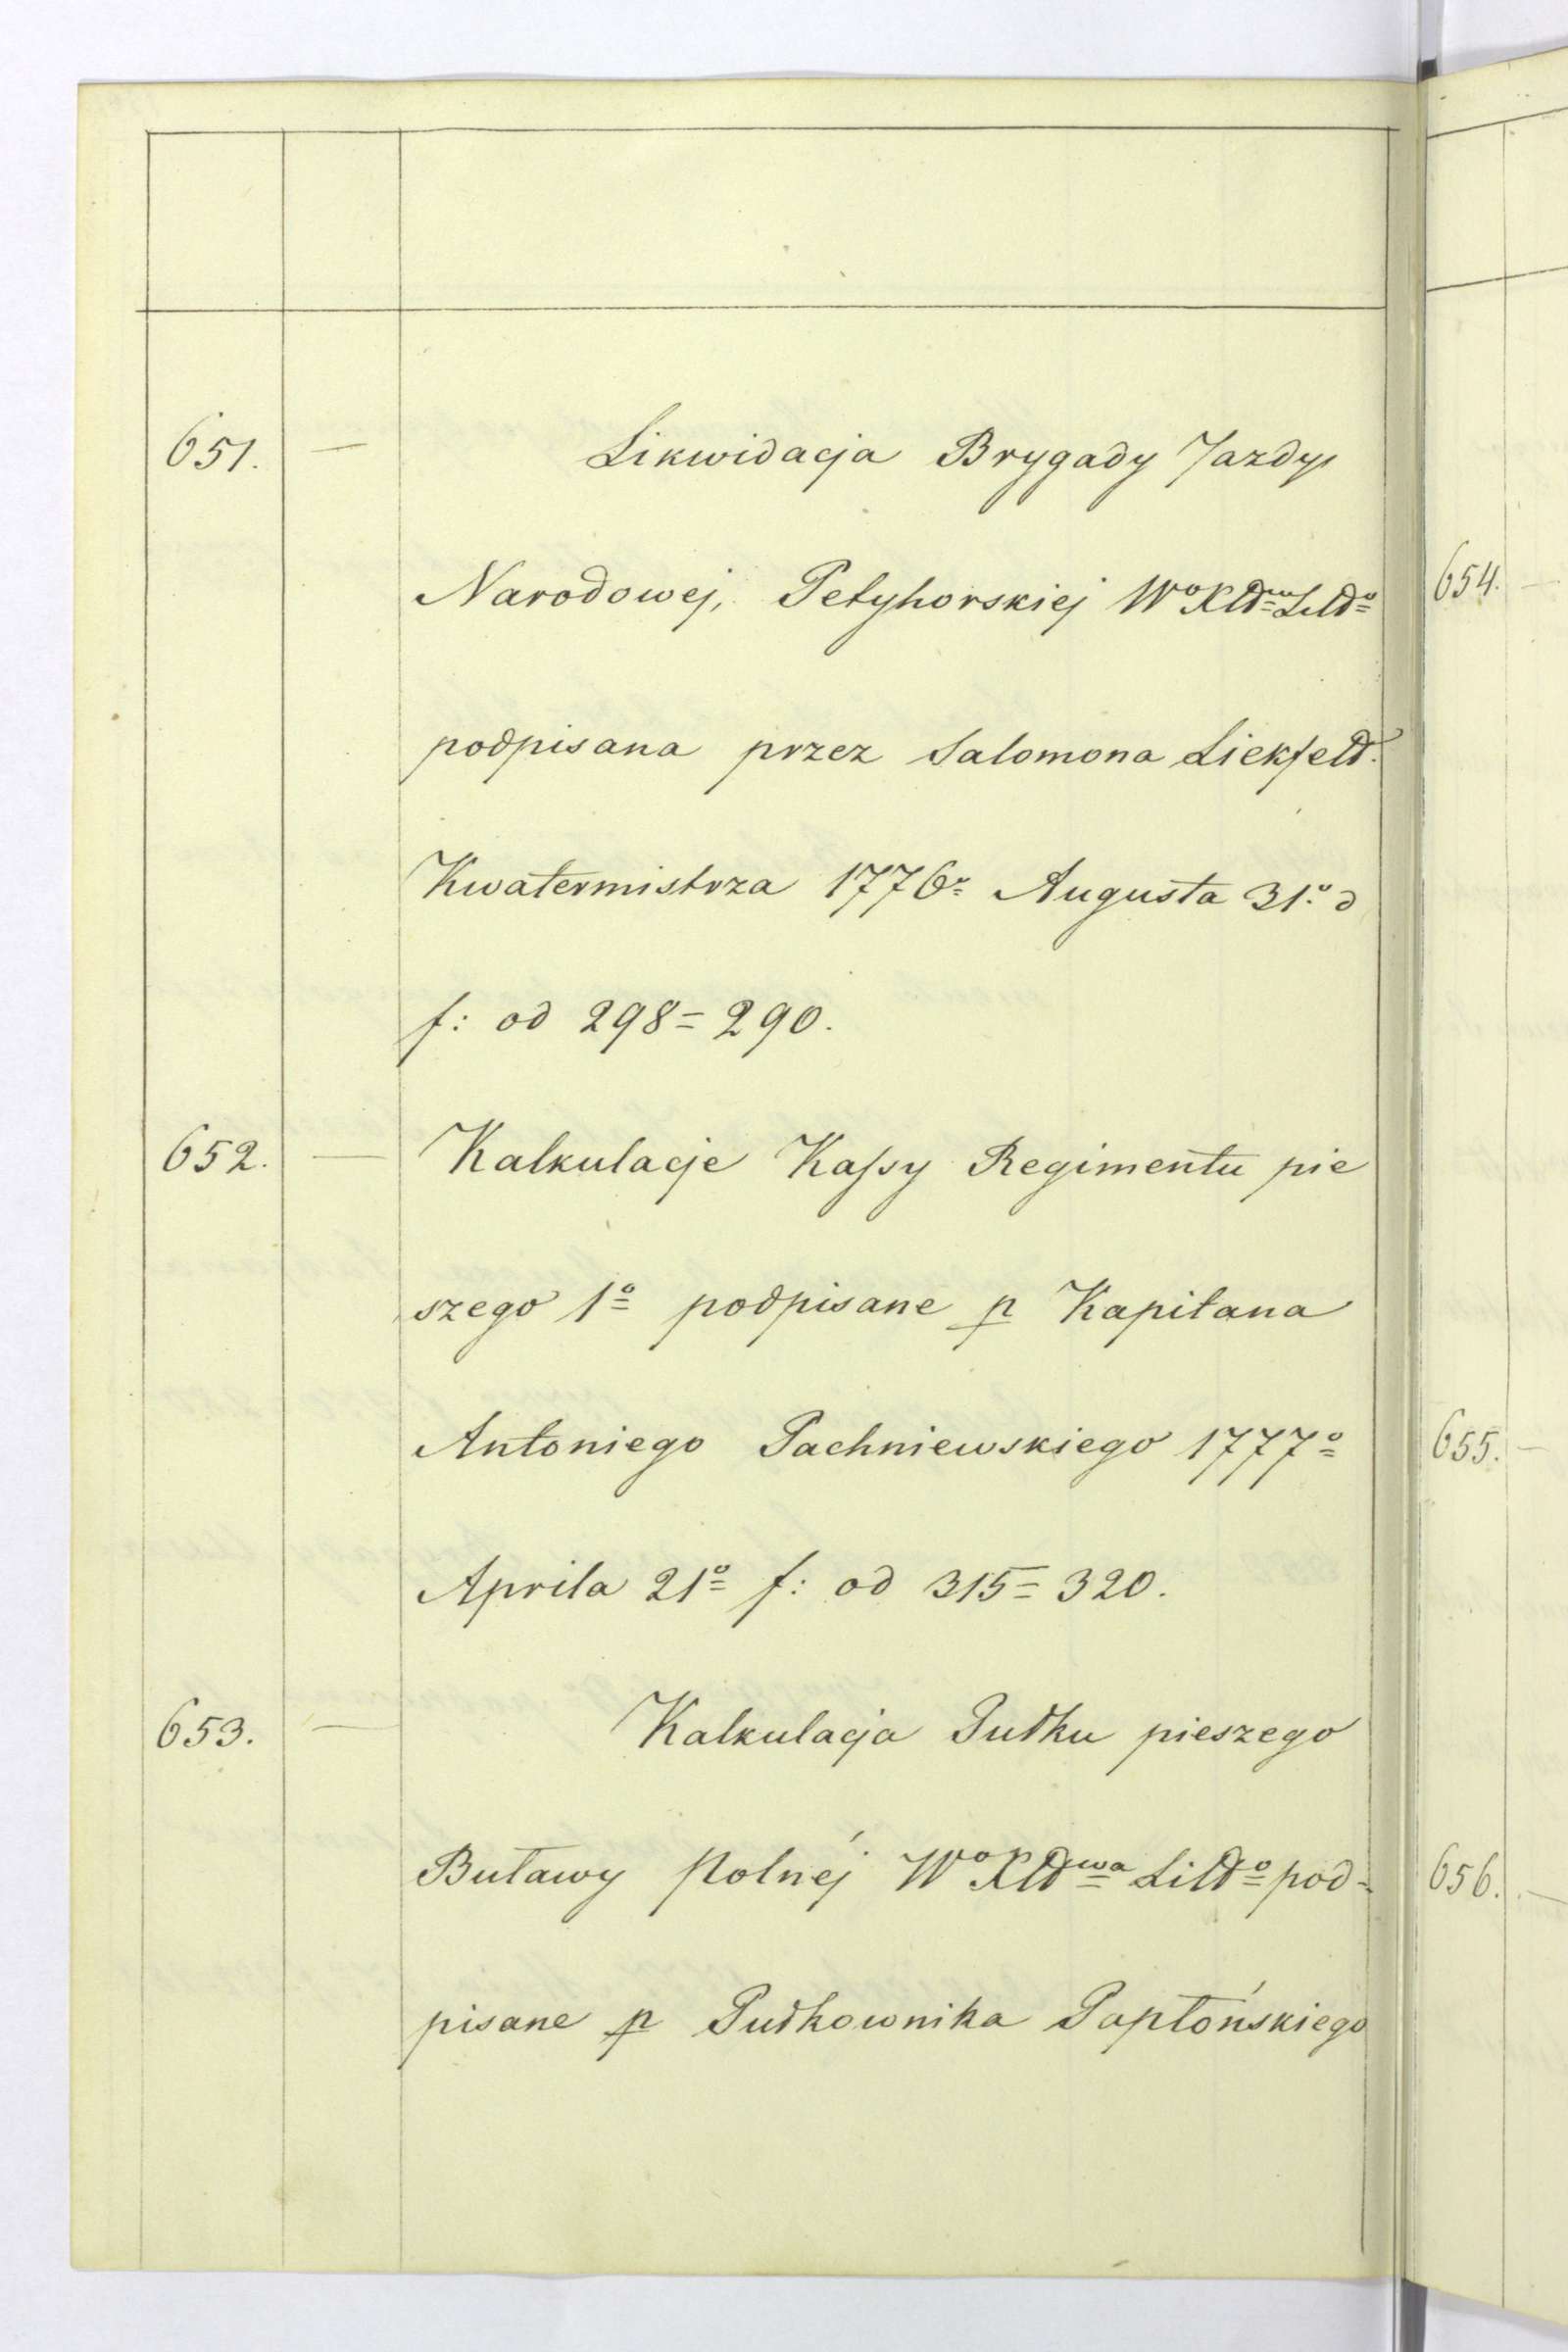 651. — Likwidacja Brygady Jazdy
Narodowej, Petyhorskiej Wº Xtdwa Litdº
podpisana przez Salomona Liekfeld.
Kwatermistrza 1776º Augusta 31º d
f: od 298 = 290.
652. — Kalkulacje Kassy Regimentu pie
szego 1º podpisane p Kapitana
Antoniego Pachniewskiego 1777º
Aprila 21º f: od 315 = 320.
653. — Kalkulacja Pułku pieszego
Buławy Polnéj Wº Xtdwa Litdº pod-
pisane p Pułkownika Papłońskiego
654. —
655. —
656. —